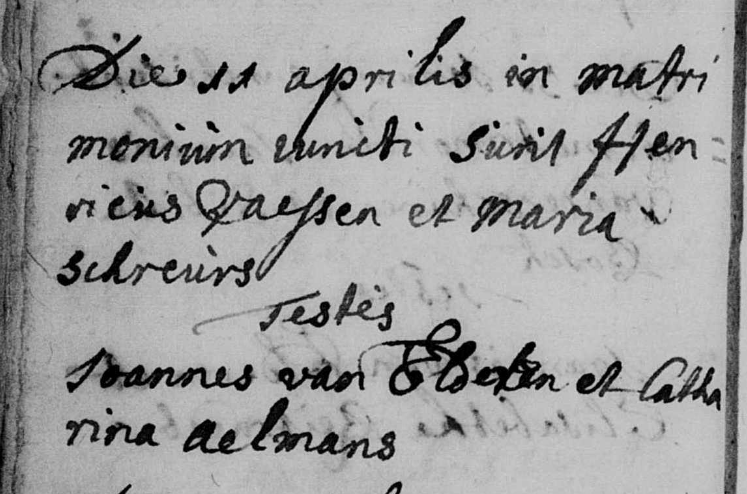 Die 11 aprilis in matri
monium iuncti sunt Hen
ricus Vaessen et maria
schreurs
Testes
Joannes van Elderen et Catha
rina aelmans